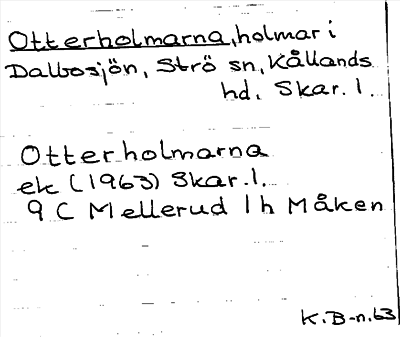 Otterholmarna, holmar i
Dalbosjön, Strö sn, Kållands
hd. Skar. l.
Otterholmarna
ek (1963) Skar. l.
9 C Mellerud 1 h Måken
K. B-n. 63